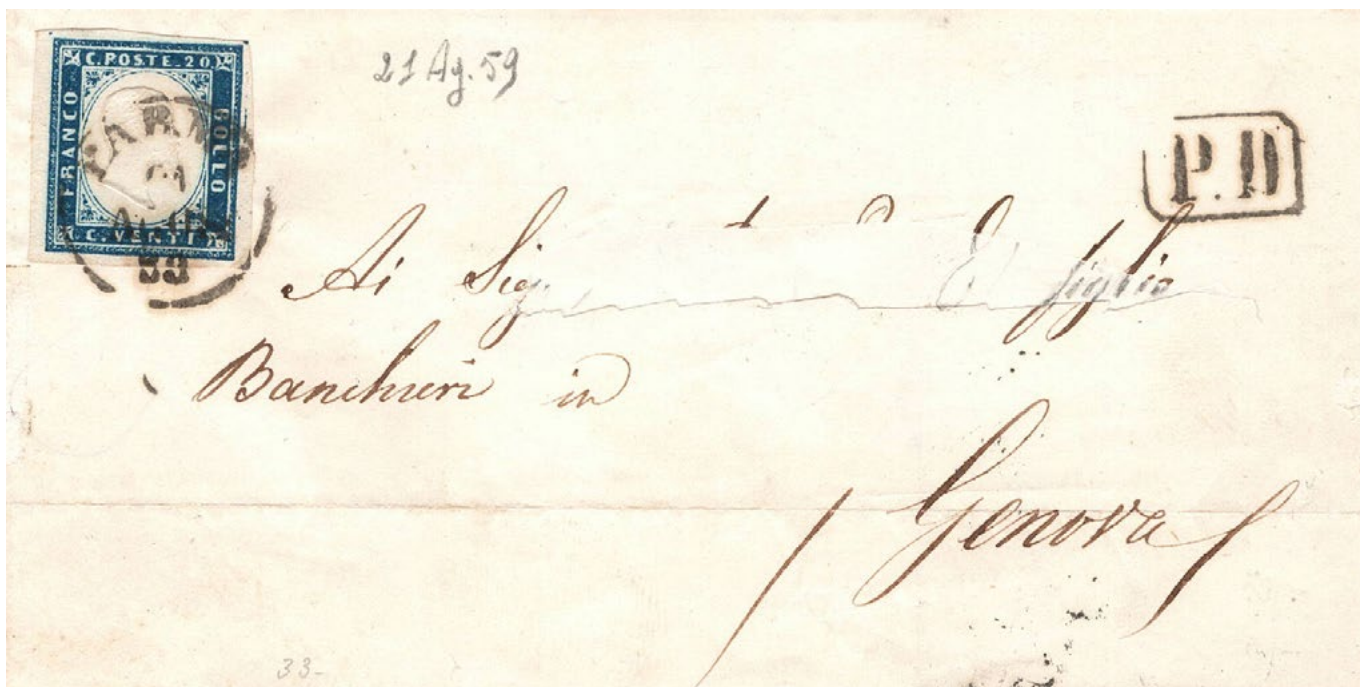 C. POSTE. 20
FRANCO
BOLLO
C. VENTI
PARMA
21
59
21 Ag. 59
P. D
Ai Sig. E figlio
Banchieri in
Genova
33-